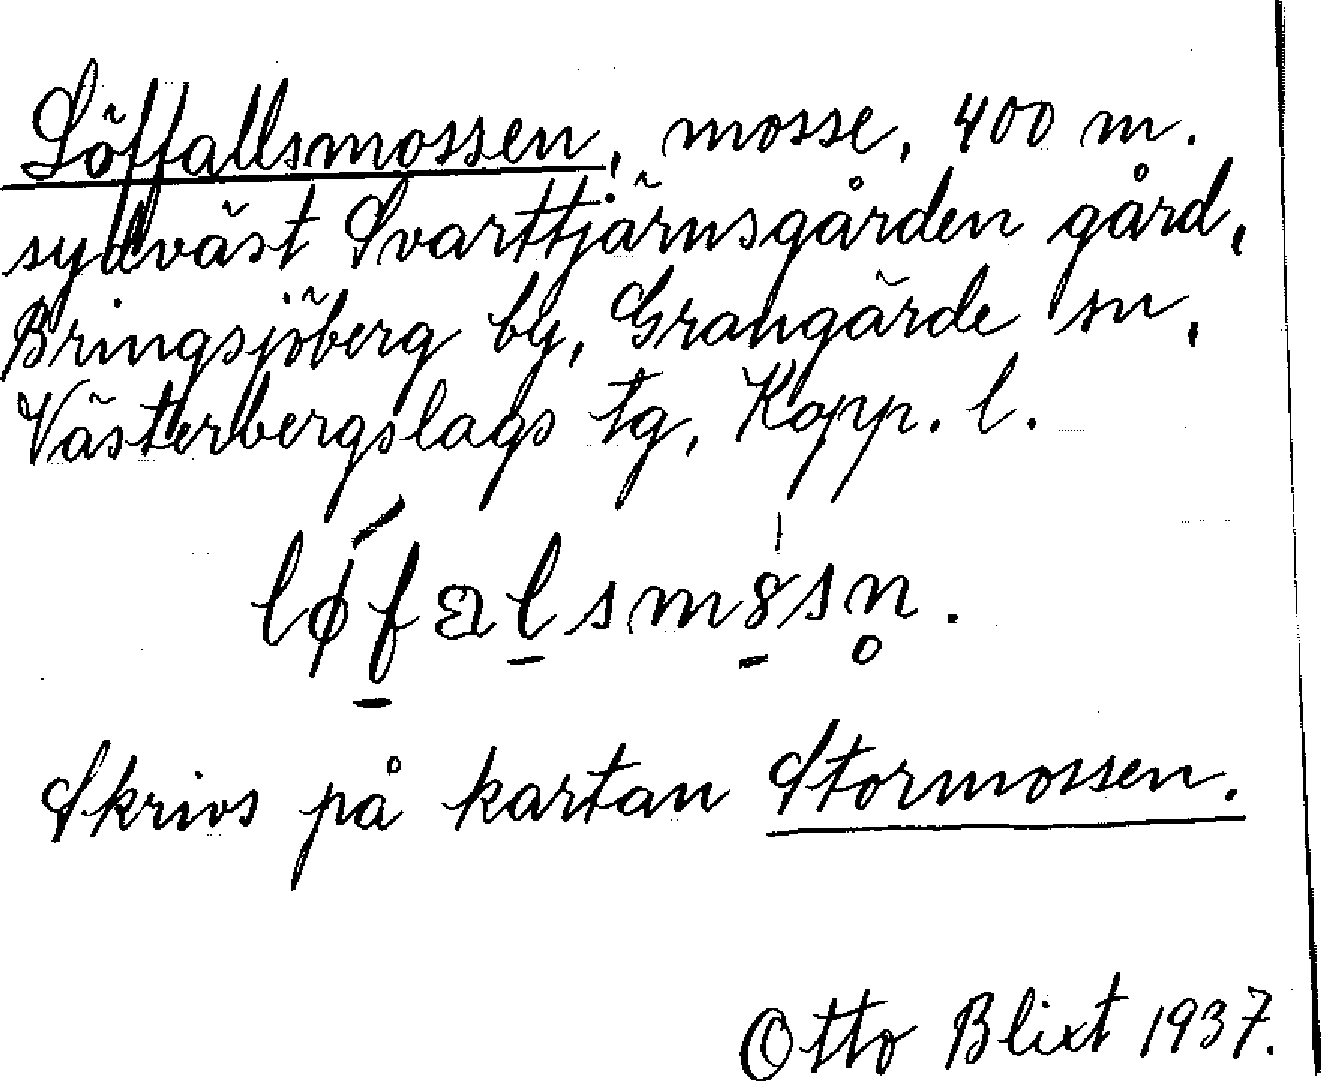 Löffallsmossen, mosse, 400 m.
sydväst Svarttjärnsgården gård,
Bringsjöberg by, Grangärde sn,
Västerbergslags tg, Kopp. l.
Skrivs på kartan Stormossen.
Otto Blixt 1937.